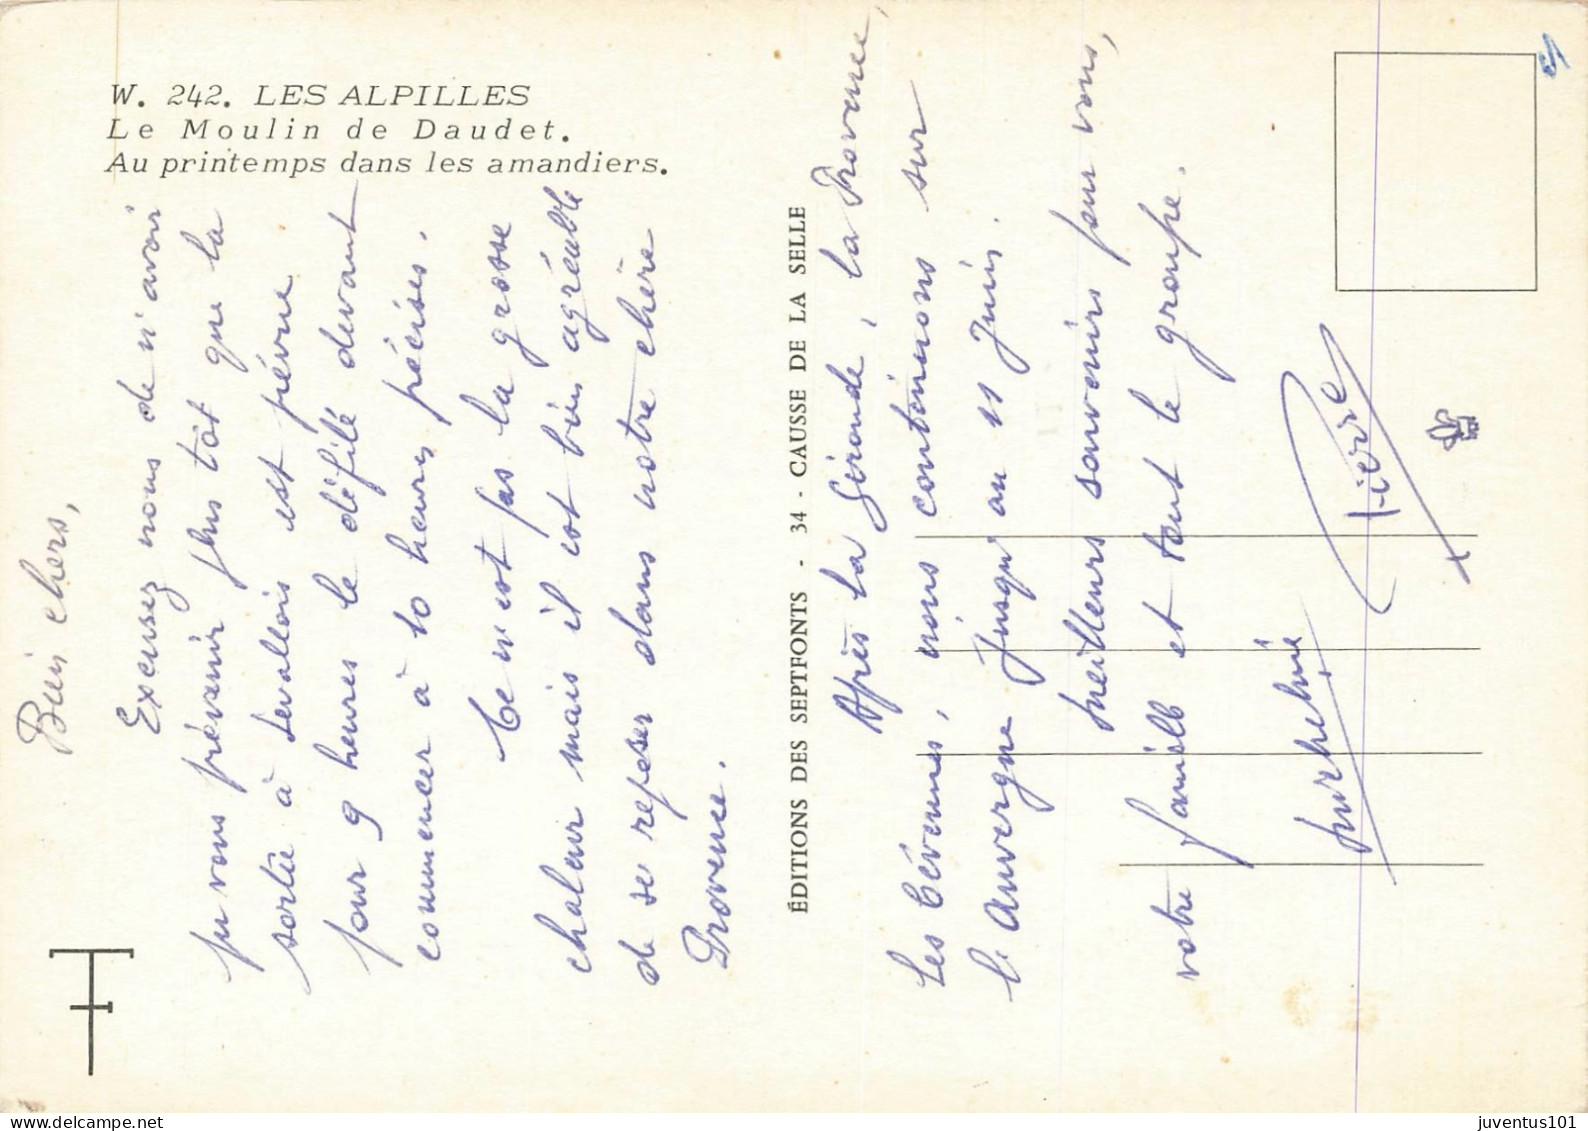 W. 242. LES ALPILLES
Le Moulin de Daudet.
Au printemps dans les amandiers.
Bien chers,
Excusez nous de n'avoir
pu vous prévenir plus tôt que la
sortie à Levallois est prévue
pour 9 heures le défilé devant
commencer à 10 heures précises.
Ce n'est pas la grosse
chaleur mais il est bien agréable
de se reposer dans notre chère
Provence.
ÉDITIONS DES SEPTFONTS - 34 - CAUSSE DE LA SELLE
Après la Gironde, la Provence,
Les Cévennes, nous continuons sur
l'Auvergne jusqu'au 11 Juin.
Meilleurs souvenirs pour vous,
votre famille et tout le groupe.
Pierre
juventus101